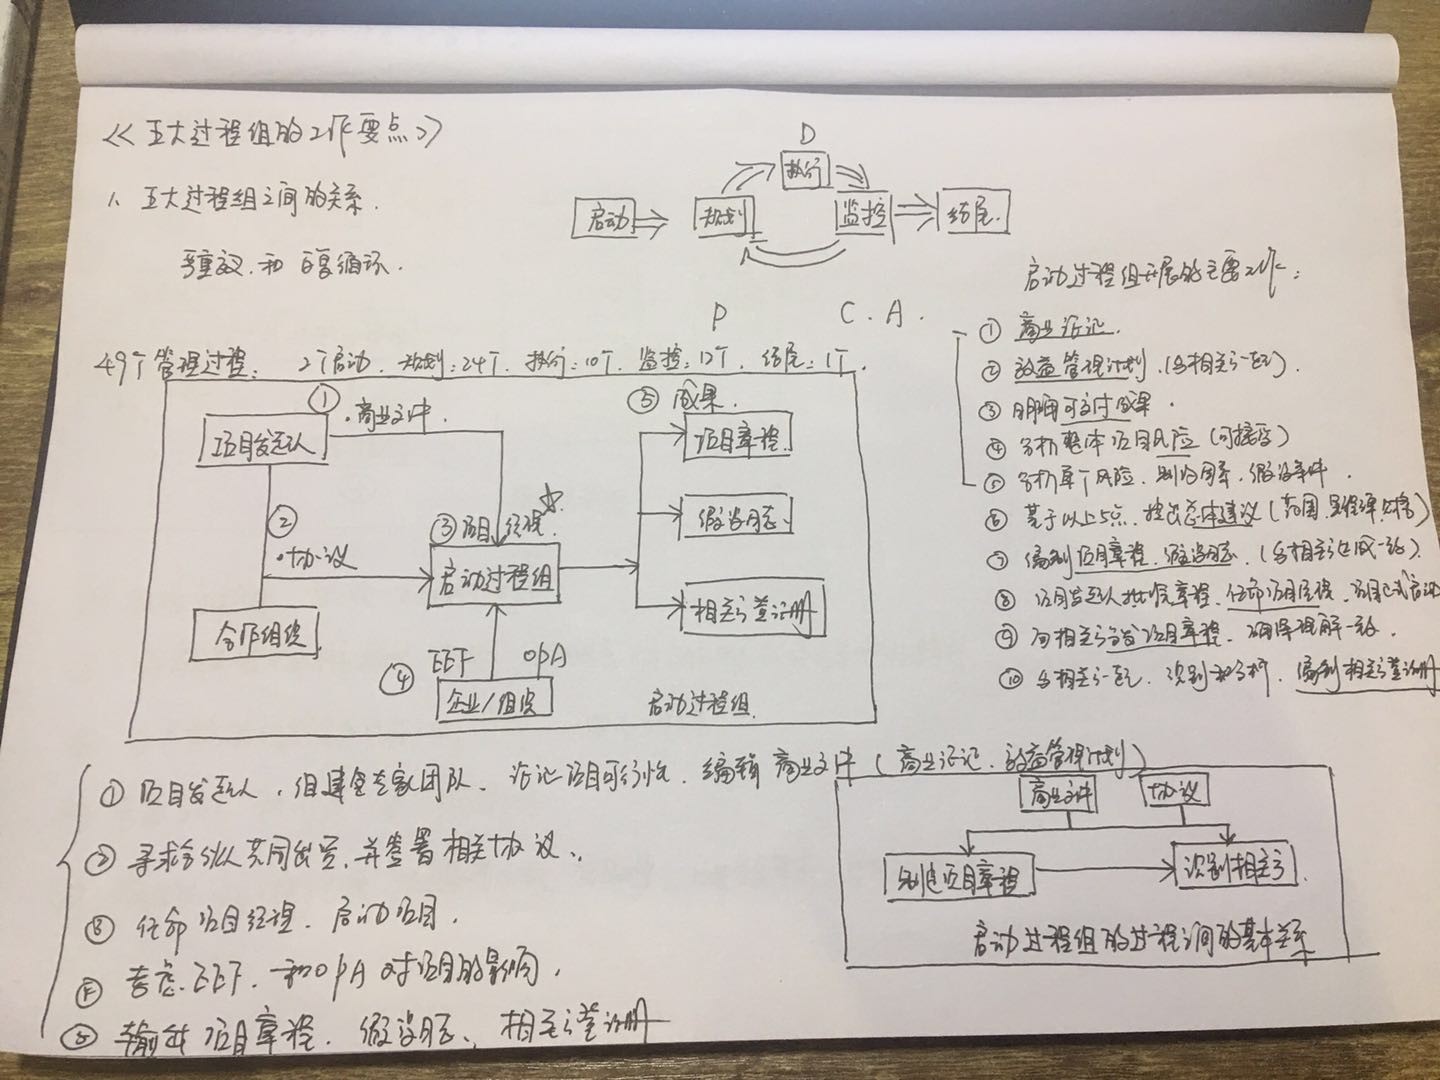 <<五大过程组的工作要点>>
1、五大过程组之间的关系.
重叠和 循环.
D
执行
启动
规划
监控
结尾.
P
C.A.
49个管理过程: 2个启动. 规划:24个. 执行:10个. 监控:12个. 结尾:1个.
①
·商业文件
项目发起人
②
·协议
合作组织
③项目经理☆
启动过程组
④
EEF OPA
企业/组织
⑤成果.
项目章程.
假设日志、
相关方登记册
启动过程组.
启动过程组开展的主要工作:
① 商业论证.
② 效益管理计划.(与相关方一起).
③ 明确可交付成果.
④ 分析整体项目风险(可接受)
⑤ 分析单个风险、制约因素、假设条件.
⑥ 基于以上5点,提出总体建议(范围、里程碑、)
⑦ 编制项目章程、假设日志(与相关方达成一致).
⑧ 项目发起人批准章程、任命项目经理、项目正式启动
⑨ 向相关方分发项目章程、确保理解一致.
⑩ 与相关方一起、识别和分析、编制相关方登记册
① 项目发起人,组建专家团队、论证项目可行性、编辑商业文件(商业论证、效益管理计划)
② 寻求合伙人共同出资,并签署相关协议、
③ 任命项目经理、启动项目.
④ 考虑EEF、和OPA对项目的影响.
⑤ 输出项目章程、假设日志、相关方登记册
商业文件
协议
制定项目章程
识别相关方.
启动过程组的过程之间的基本关系